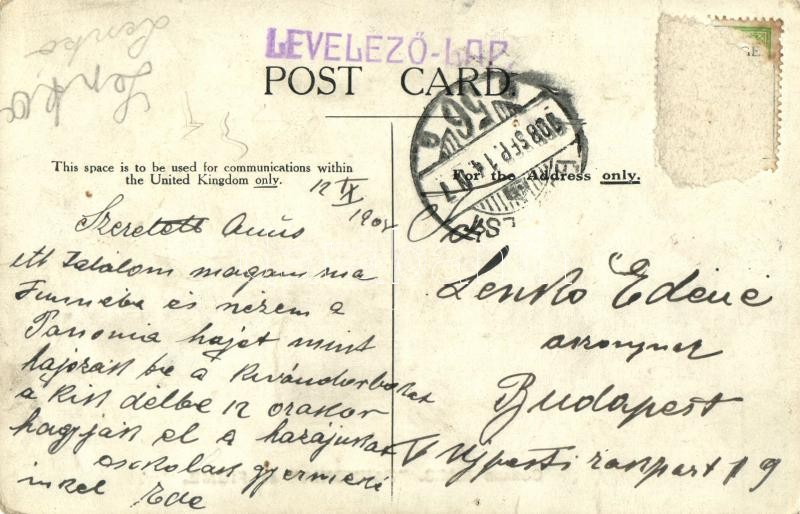 Lenko
Lenko
LEVELEZŐ-LAP.
POST CARD.
This space is to be used for communications within
the United Kingdom only.
For the Address only.
12/IX
1908
908 SEP 14
56
Szeretett Anus
itt találom magam ma
Fiumeba és nézem a
Panonia hajot mint
hajozák be a kivándorlokat
a kik délbe 12 orakor
hagyják el a hazájukat
csokolak gyermeke
inkel Ede
Lenko Edéné
asszonynak
Budapest
V Ujpesti rakpart 19